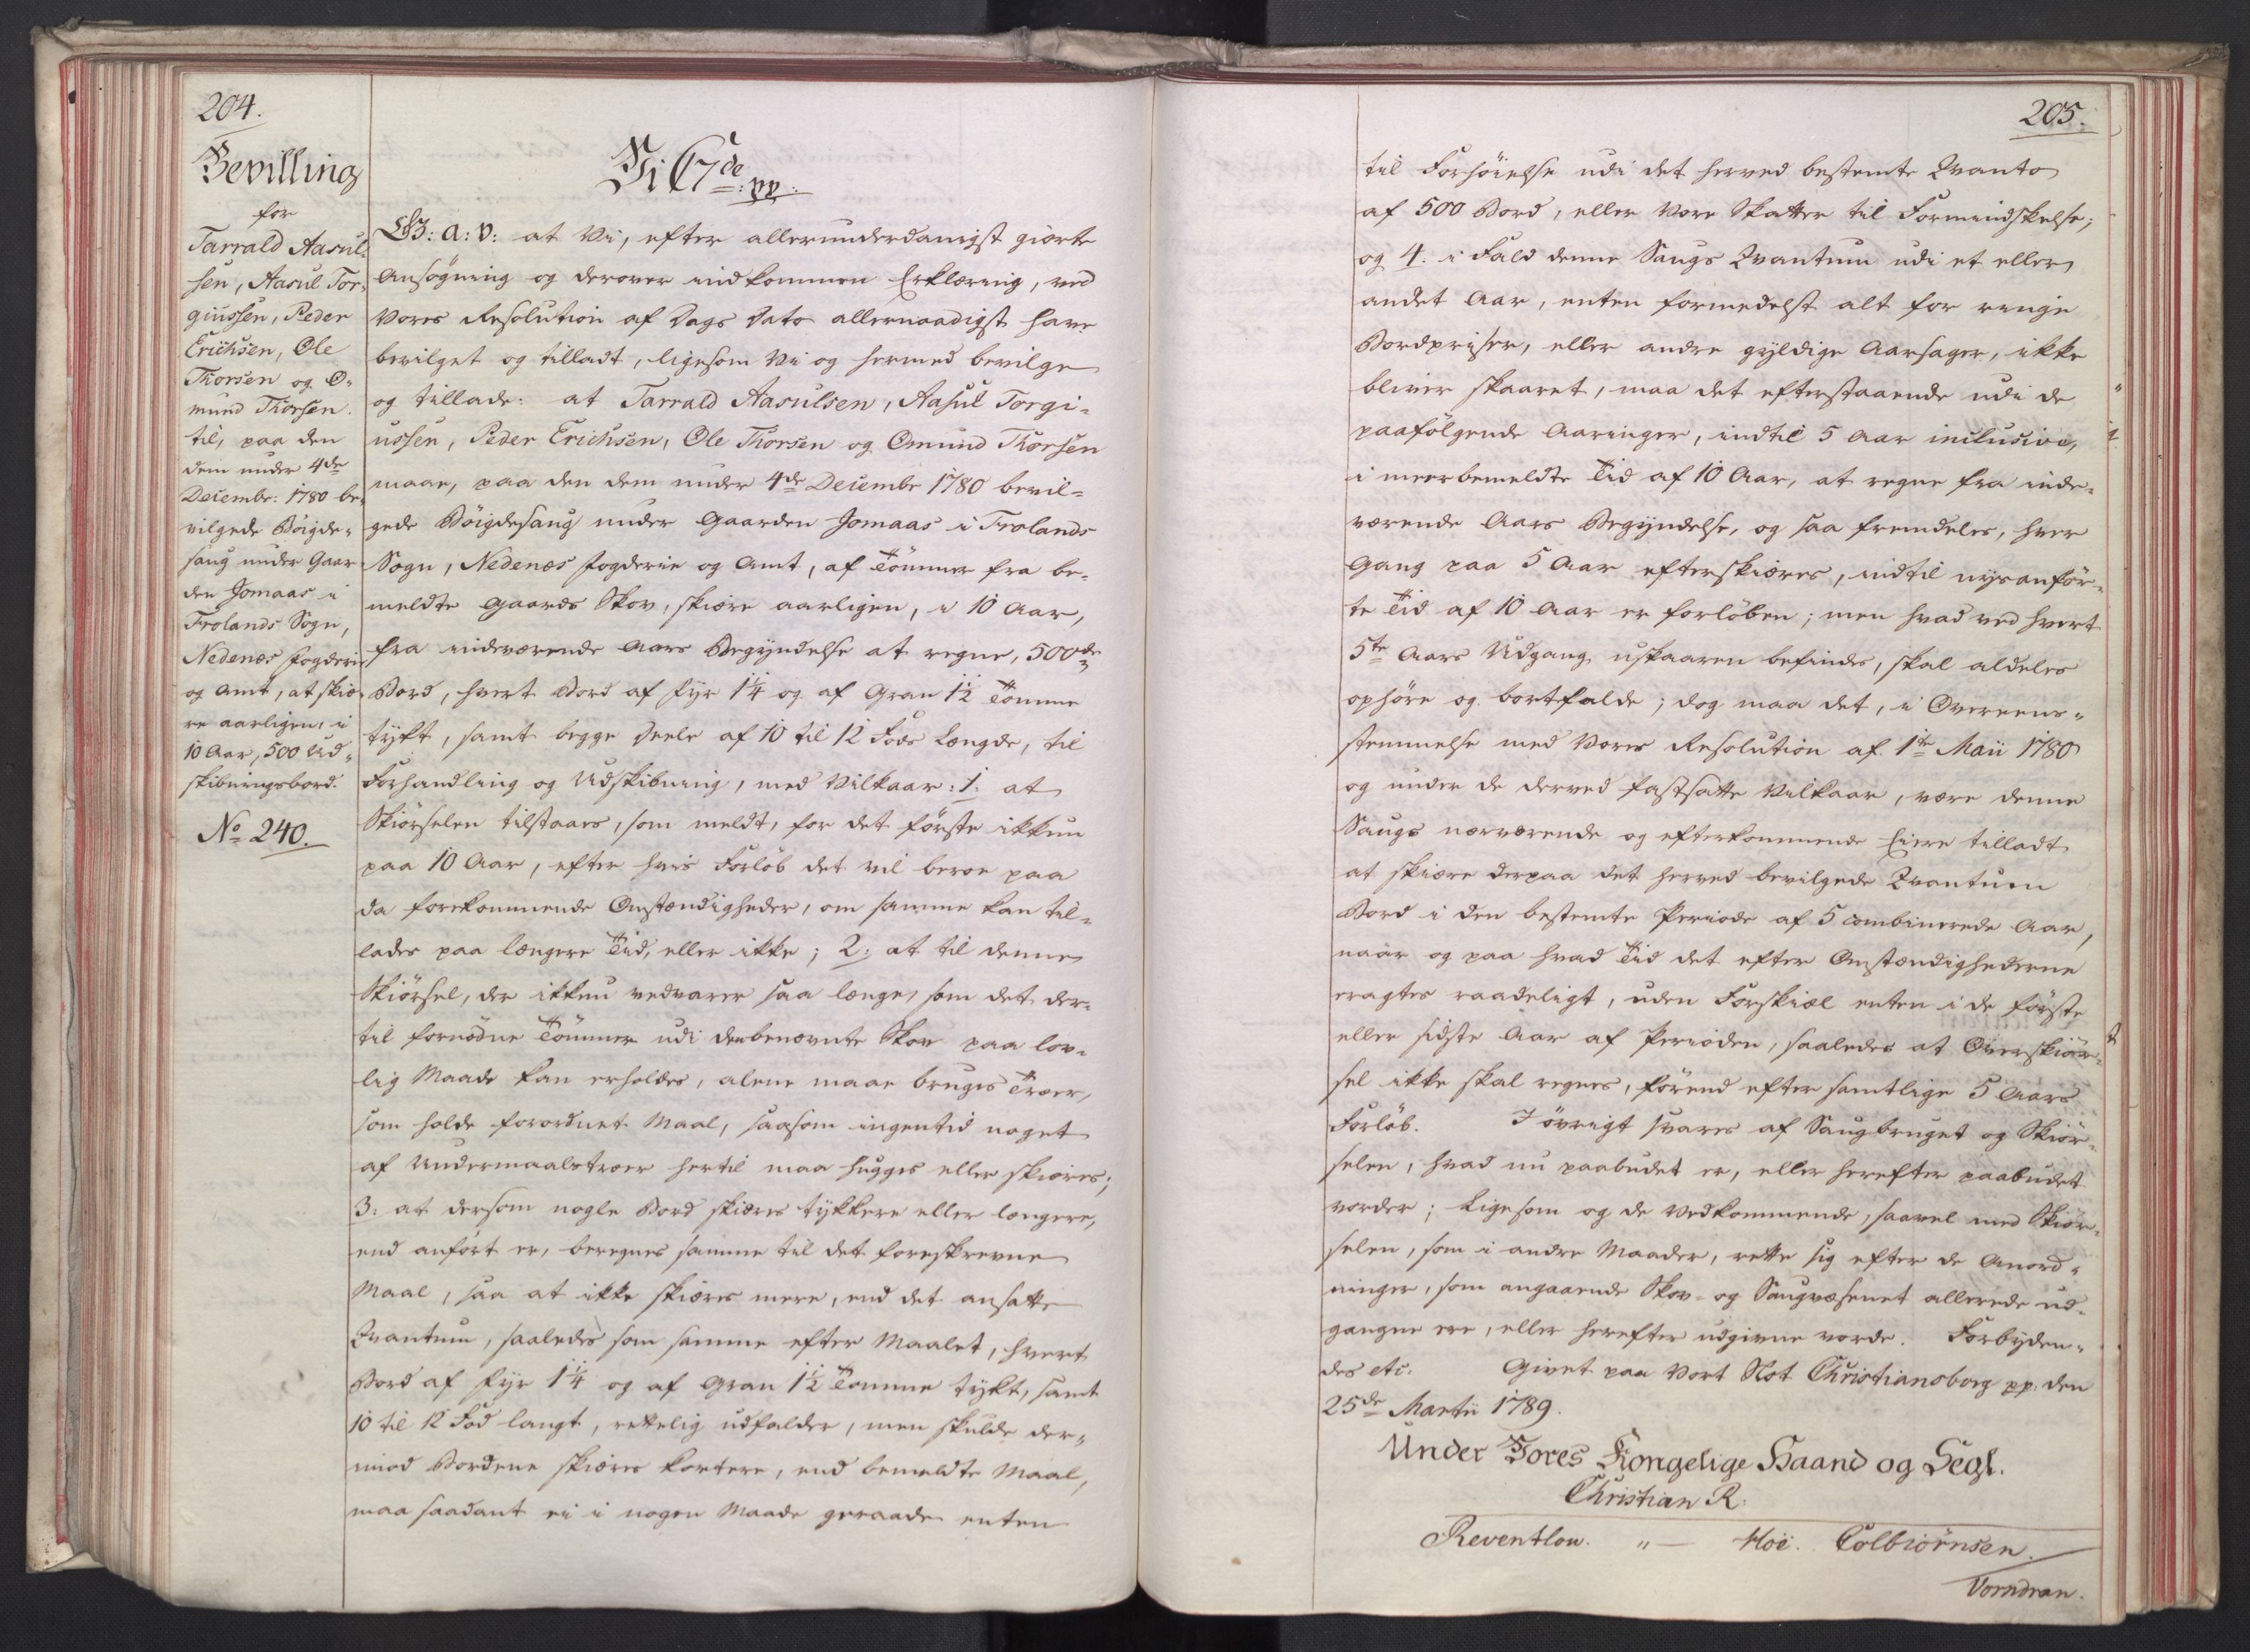 204.
Bevilling
for
Tarrald Aasul-
sen, Aasul Tor-
giussen, Peder
Erichsen, Ole
Thorsen og O-
mund Thorsen.
til, paa den
dem under 4de
Decembr: 1780 be-
vilgede Böigde-
saug under Gaar-
den Jomaas i
Frolands Sogn,
Nedenæs Fogderie
og Amt, at skiæ-
re aarligen, i
10 Aar, 500 Ud-
skibningsbord.
No 240.
Vi C 7de: pp:
G: A: V: at Vi, efter allerunderdanigst giorte
Ansögning og derover indkommen Erklæring, ved
Vores Resolution af Dags Dato allernaadigst have
bevilget og tilladt, ligesom Vi og hermed bevilge
og tillade: at Tarrald Aasulsen, Aasul Torgi-
ussen, Peder Erichsen, Ole Thorsen og Omund Thorsen
maae, paa den dem under 4de Decembr 1780 bevil-
gede Böigdesaug under Gaarden Jomaas i Frolands
Sogn, Nedenæs Fogderie og Amt, af Tömmer fra be-
meldte Gaards Skov, skiære aarligen, i 10 Aar,
fra indeværende Aars Begyndelse at regne, 500de
Bord, hvert Bord af Fyr 1¼ og af Gran 1½ Tomme
tykt, samt begge Deele af 10 til 12 Fods Længde, til
Forhandling og Udskibning, med Vilkaar: 1: at
Skiörselen tilstaaes, som meldt, for det förste ikkun
paa 10 Aar, efter hvis Forlöb det vil beroe paa
da forekommende Omstændigheder, om samme kan til-
lades paa længere Tid, eller ikke; 2: at til denne
Skiörsel, der ikkun vedvarer saa længe, som det der-
til fornödne Tömmer udi denbenævnte Skov paa lov-
lig Maade kan erholdes, alene maae bruges Træer,
som holde forordnet Maal, saasom ingentid noget
af Undermaalstræer hertil maa hugges eller skiæres;
3: at dersom nogle Bord skiæres tykkere eller længere,
end anfört er, beregnes samme til det foreskrevne
Maal, saa at ikke skiæres mere, end det ansatte
Qvantum, saaledes som samme efter Maalet, hvert
Bord af Fyr 1¼ og af Gran 1½ Tomme tykt, samt
10 til 12 Fod langt, rettelig udfalder, men skulde der-
imod Bordene skiæres kortere, end bemeldte Maal,
maa saadant ei i nogen Maade geraade enten
205.
til Forhöielse udi det herved bestemte Qvanto
af 500 Bord, eller Vore Skatter til Formindskelse;
og 4: i Fald denne Saugs Qvantum udi et eller
andet Aar, enten formedelst alt for ringe
Bordpriser, eller andre gyldige Aarsager, ikke
bliver skaaret, maa det efterstaaende udi de
paafölgende Aaringer, indtil 5 Aar inclusive,
i meerbemeldte Tid af 10 Aar, at regne fra inde-
værende Aars Begyndelse, og saa fremdeles, hver
Gang paa 5 Aar efterskiæres, indtil nysanför-
te Tid af 10 Aar er forlöben; men hvad ved hvert
5te Aars Udgang uskaaren befindes, skal aldeles
ophöre og bortfalde; dog maa det, i Overeens-
stemmelse med Vores Resolution af 1te Maii 1780
og under de derved fastsatte Vilkaar, være denne
Saugs nærværende og efterkommende Eiere tilladt
at skiære derpaa det herved bevilgede Qvantum
Bord i den bestemte Periode af 5 combinerede Aar,
naar og paa hvad Tid det efter Omstændighederne
eragtes raadeligt, uden Forskiæl enten i de förste
eller sidste Aar af Perioden, saaledes at Overskiör-
sel ikke skal regnes, förend efter samtlige 5 Aars
Forlöb. I övrigt svares af Saugbruget og Skiör-
selen, hvad nu paabudet er, eller herefter paabudet
vorder; Ligesom og de Vedkommende, saavel med Skiör-
selen, som i andre Maader, rette sig efter de Anord-
ninger, som angaaende Skov- og Saugvæsenet allerede ud-
gangne ere, eller herefter udgivne vorde. Forbyden-
des etc. Givet paa Vort Slot Christiansborg pp: den
25de Martii 1789.
Under Vores Kongelige Haand og Segl.
Christian R.
Reventlow. " — Hoë. Colbiörnsen.
Vorndran.